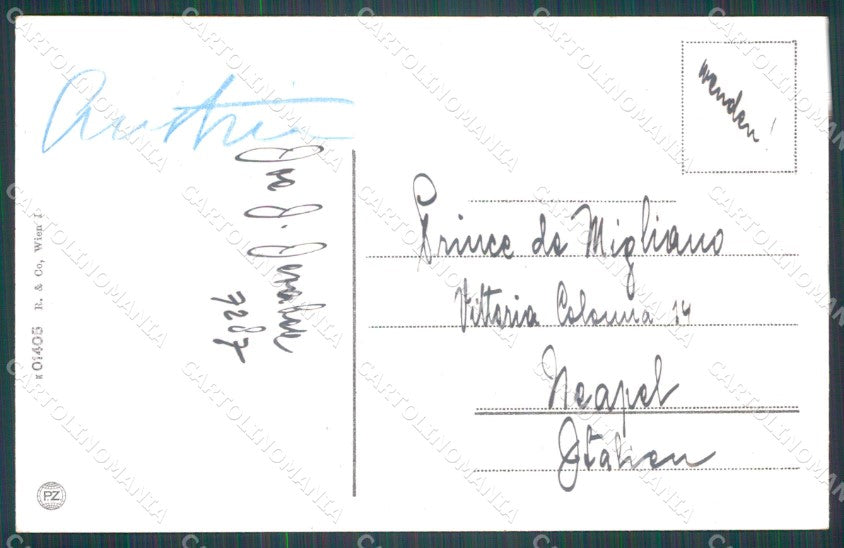 Austria
wenden!
Prince de Migliano
Vittoria Colonna 14
Neapel
Italien
7287
01405 R. & Co, Wien I
PZ
CARTOLINOMANIA